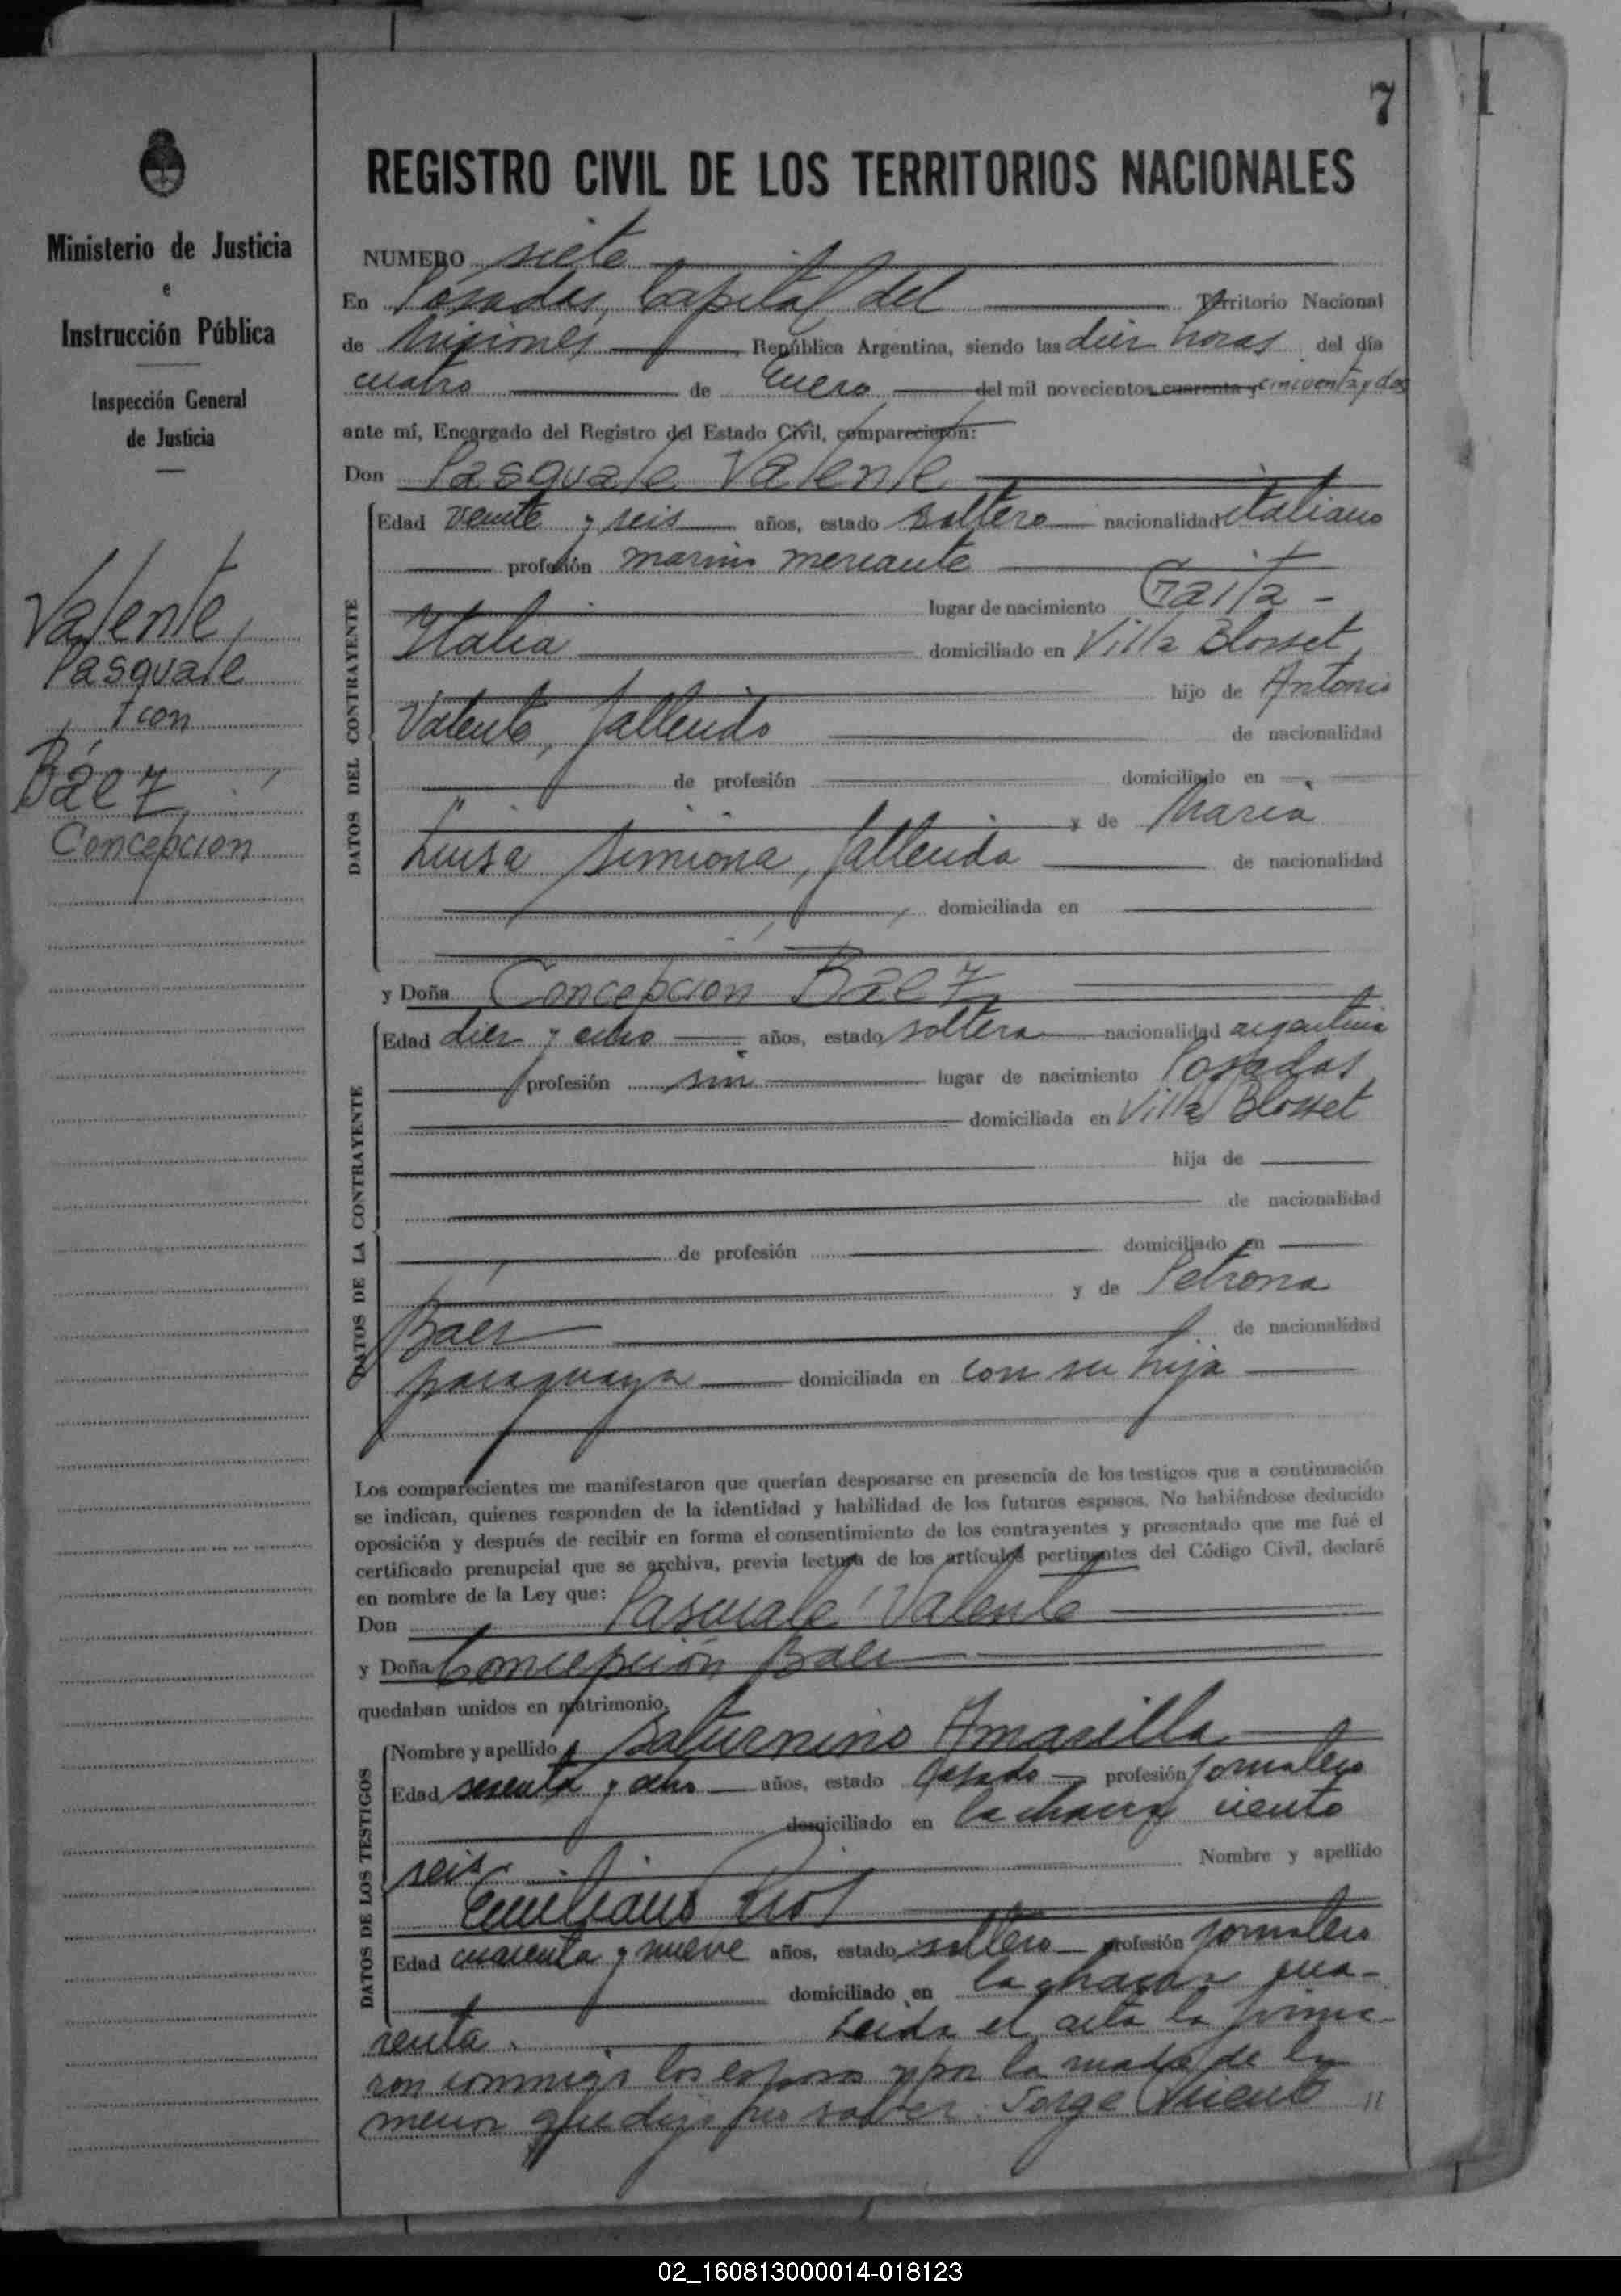 7
REGISTRO CIVIL DE LOS TERRITORIOS NACIONALES
Ministerio de Justicia
e
Instrucción Pública
Inspección General
de Justicia
Valente,
Pasquale
con
Báez
Concepcion
NUMERO siete
En Posadas, Capital del Territorio Nacional
de Misiones República Argentina, siendo las diez horas del día
cuatro de Enero del mil novecientos cuarenta y cincuenta y dos
ante mí, Encargado del Registro del Estado Civil, comparecieron:
Don Pasquale Valente
DATOS DEL CONTRAYENTE
Edad veinte y seis años, estado soltero nacionalidad italiano
profesión marino mercante
lugar de nacimiento Gaita -
Italia domiciliado en Villa Blosset,
hijo de Antonio
Valente, fallecido de nacionalidad
de profesión domiciliado en
y de Maria
Luisa Simiona, fallecida de nacionalidad
domiciliada en
y Doña Concepcion Báez
DATOS DE LA CONTRAYENTE
Edad diez y ocho años, estado soltera nacionalidad argentina
profesión sin lugar de nacimiento Posadas
domiciliada en Villa Blosset
hija de
de nacionalidad
de profesión domiciliado en
y de Petrona
Baez de nacionalidad
paraguaya domiciliada en con su hija
Los comparecientes me manifestaron que querían desposarse en presencia de los testigos que a continuación
se indican, quienes responden de la identidad y habilidad de los futuros esposos. No habiéndose deducido
oposición y después de recibir en forma el consentimiento de los contrayentes y presentado que me fué el
certificado prenupcial que se archiva, previa lectura de los artículos pertinentes del Código Civil, declaré
en nombre de la Ley que:
Don Pascuale Valente
y Doña Concepción Baez
quedaban unidos en matrimonio.
DATOS DE LOS TESTIGOS
Nombre y apellido Saturnino Amarilla
Edad sesenta y ocho años, estado casado profesión jornalero
domiciliado en la chacra ciento
seis. Nombre y apellido
Emiliano Rios
Edad cuarenta y nueve años, estado soltero profesión jornalero
domiciliado en la chacra cua-
renta. Leida el acta la firma-
ron conmigo los esposos y por la madre de la
menor que dijo no saber. Jorge "
02_160813000014-018123